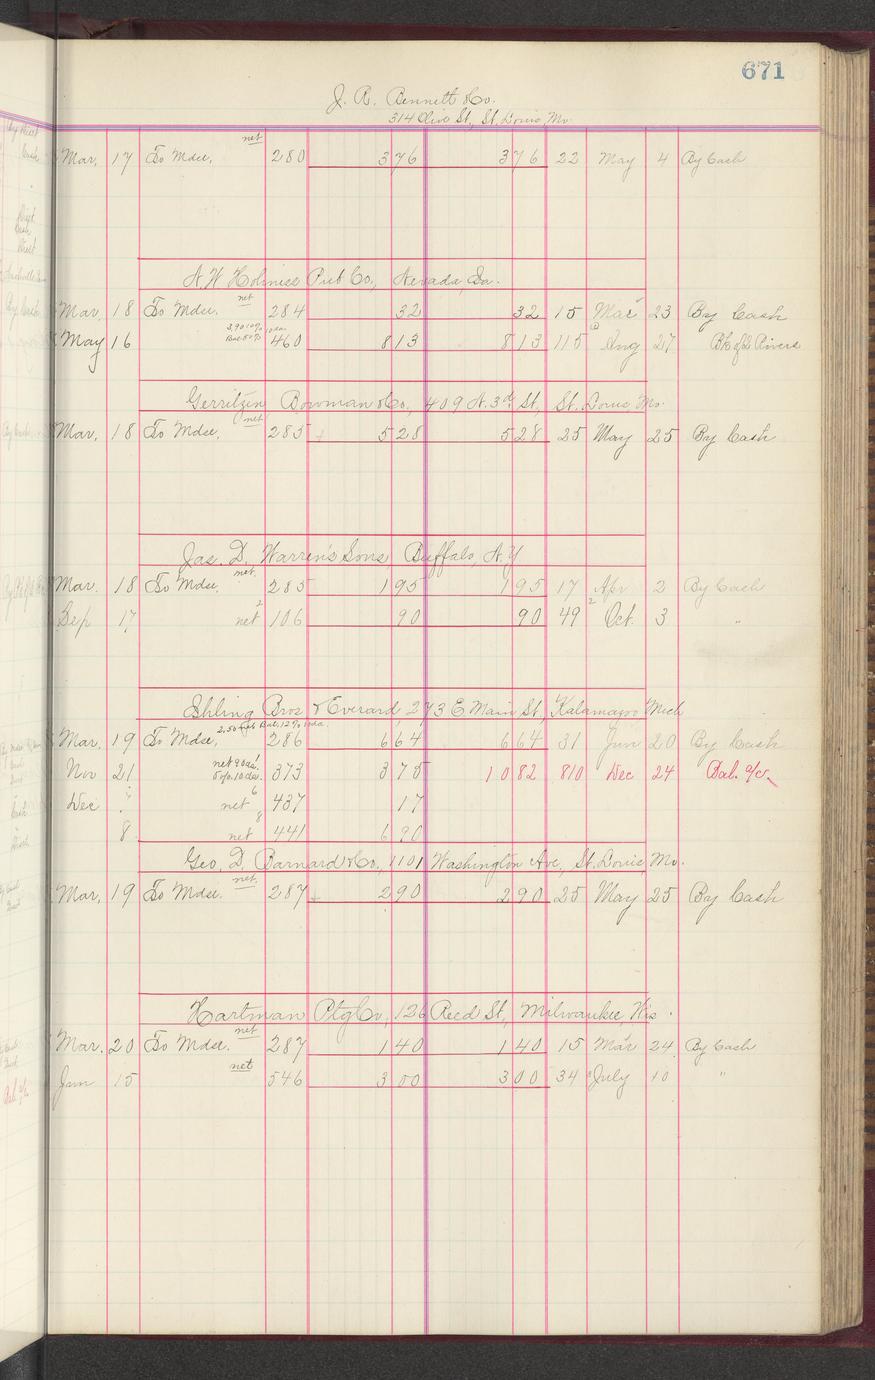 671
J. R. Bennett & Co.
314 Olive St, St. Louis, Mo.
Mar. 17 To Mdse, net 280 3 76 3 76 22 May 4 By Cash
Pub Co, Nevada,
Mar. 18 To Mdse. net 284 32 32 15 Mar 23 By Cash
May 16 460 8 13 8 13 115 Aug 27
Gerritzen Bowman & Co, 409 N. 3d St, St. Louis Mo.
Mar, 18 To Mdse, net 285 5 28 5 28 25 May 25 By Cash
Jas. D. Warren's Sons Buffalo, N.Y
Mar. 18 To Mdse, net 285 1 95 1 95 17 Apr 2 By Cash
Sep 17 net 2 106 90 90 49 2 Oct. 3 "
Ihling Bros & Everard, 273 E Main St, Kalamazoo Mich
Mar. 19 To Mdse, 286 6 64 6 64 31 Jun 20 By Cash
Nov 21 373 3 75 10 82 810 Dec 24 Bal. a/c
Dec net 6 437 17
8 net 8 441 6 90
Geo, D. Barnard & Co, 1101 Washington Ave, St. Louis, Mo.
Mar. 19 To Mdse. net 287 2 90 2 90 25 May 25 By Cash
Hartman Ptg Co, 126 Reed St, Milwaukee, Wis.
Mar. 20 To Mdse. net 287 1 40 1 40 15 Mar 24 By Cash
Jun 15 net 546 3 00 3 00 34 July 10 "